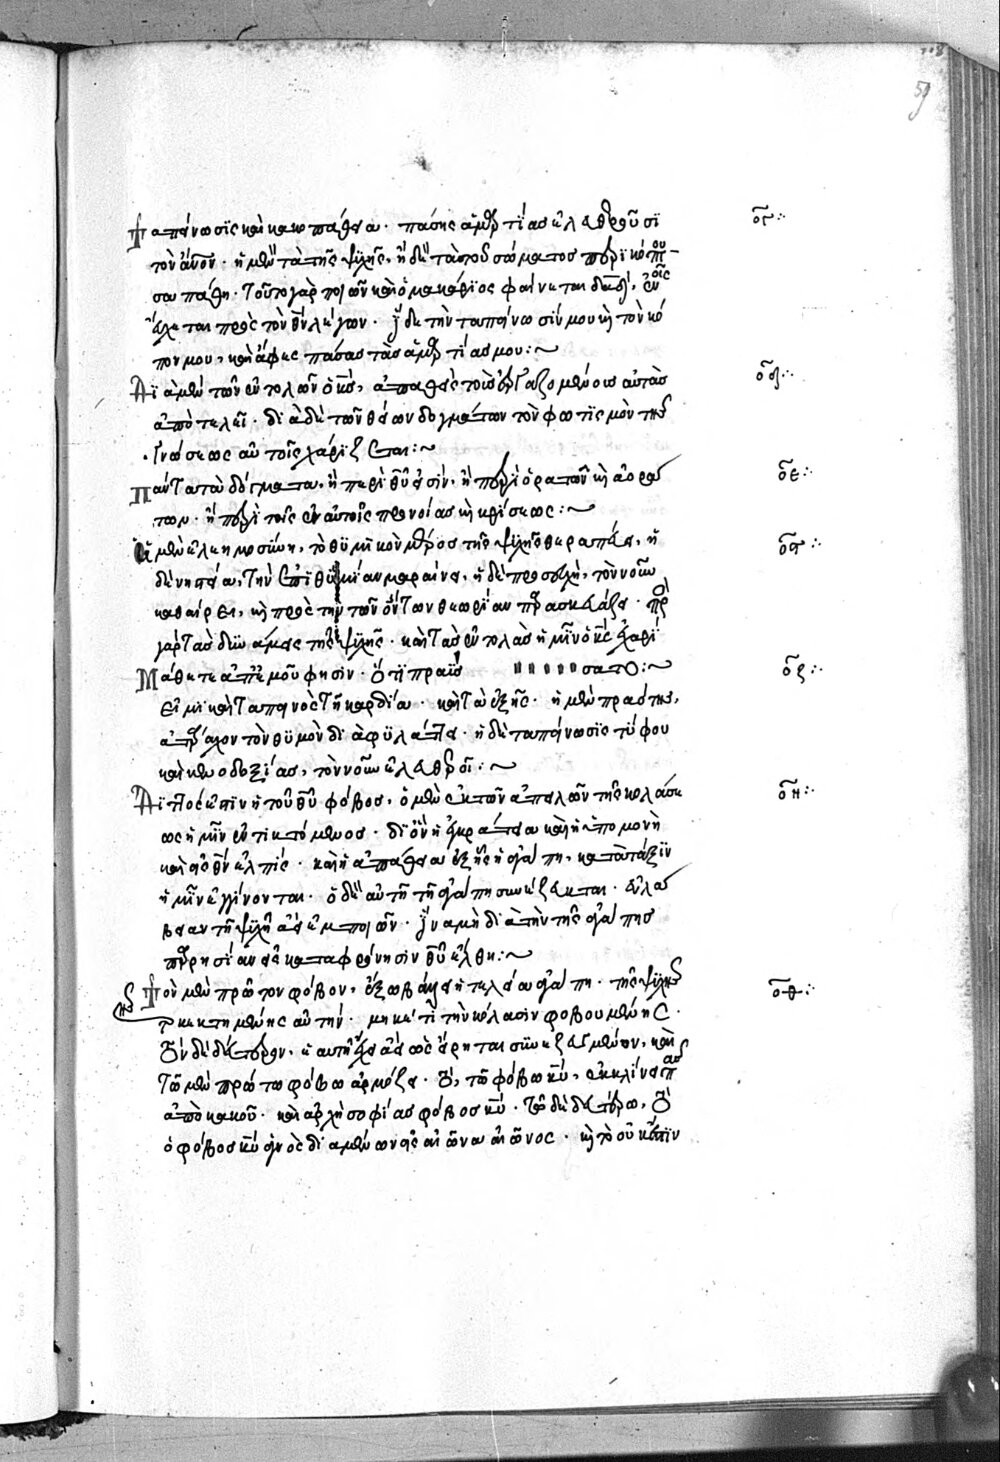 59
Ταπείνωσις καὶ κακοπάθεια· πάσης ἁμρτίας ἐλευθεροῦσι ογ:·
τὸν ἄνον· ἡ μὲν τὰ τῆς ψυχῆς, ἡ δὲ τὰ τοῦ σώματος περικόπτου
σα πάθη· Τοῦτο γὰρ ποιῶν καὶ ὁ μακάριος φαίνεται δαδ, ἐν οἷς
εὔχεται πρὸς τὸν θν λέγων· ἴδε τὴν ταπείνωσίν μου κ τὸν κό
πον μου, καὶ ἄφες πάσας τὰς ἁμρτίας μου:~
Διὰ μὲν τῶν ἐντολῶν ὁ κς, ἀπαθεῖς τοὺς ἐργαζομένους αὐτὰς οδ:·
ἀποτελεῖ· διὰ δὲ τῶν θείων δογμάτων τὸν φωτισμὸν τῆς
γνώσεως αὐτοῖς χαρίζεται:~
Πάντα τὰ δόγματα, ἢ περὶ θυ εἰσίν, ἢ περὶ ὁρατῶν κ ἀορά οε:·
των· ἢ περὶ τῆς ἐν αὐτοῖς προνοίας κ κρίσεως:~
Ἡ μὲν ἐλεημοσύνη, τὸ θυμικὸν μέρος τῆς ψυχῆς θεραπεύει, ἡ ος:·
δὲ νηστεία, Τὴν ἐπιθυμίαν μαραίνει, ἡ δὲ προσευχὴ, τὸν νοῦν
καθαίρει, κ πρὸς τὴν τῶν ὄντων θεωρίαν παρασκευάζει· πρὸς
γὰρ τὰς δυνάμεις τῆς ψυχῆς· καὶ τὰς ἐντολὰς ἡμῖν ὁ κς ἐχαρί
σατο:~
Μάθετε ἀπ ἐμοῦ φησίν· ὅτι πραΰς οζ:·
εἰμι καὶ ταπεινὸς τῇ καρδίᾳ· καὶ τὰ ἑξῆς· ἡ μὲν πραότης,
ἀτάραχον τὸν θυμὸν διαφυλάττει· ἡ δὲ ταπείνωσις τύφου
καὶ κενοδοξίας, τὸν νοῦν ἐλευθεροῖ:~
Διττός ἐστιν ὁ τοῦ θυ φόβος, ὁ μὲν ἐκ τῶν ἀπειλῶν τῆς κολάσε οη:·
ως ἡμῖν ἐντικτόμενος· δι ὃν ἡ ἐγκράτεια καὶ ἡ ὑπομονὴ
καὶ εἰς θν ἐλπίς· καὶ ἡ ἀπάθεια ἐξ ἧς ἡ ἀγάπη, κατὰ τάξιν
ἡμῖν ἐγγίνονται· ὁ δὲ αὐτῇ τῇ ἀγάπῃ συνέζευκται· εὐλά
βειαν τῇ ψυχῇ ἀεὶ ἐμποιῶν· ἵνα μὴ διὰ τὴν τῆς ἀγάπης
παρρησίαν εἰς καταφρόνησιν θυ ἔλθῃ:~
Τὸν μὲν πρῶτον φόβον, ἔξω βάλλει ἡ τελεία ἀγάπη· τῆς ψυχῆς οθ:·
τῆς κεκτημένης αὐτήν· μηκέτι τὴν κόλασιν φοβουμένης·
Τὸν δὲ δεύτερον, ἑαυτῇ ἔχει ἀεὶ ὡς εἴρηται συνεζευγμένον, καὶ
Τῷ μὲν πρώτῳ φόβῳ ἁρμόζει· τό, τῷ φόβῳ κυ, ἐκκλίνει πας
ἀπὸ κακοῦ· καὶ ἀρχὴ σοφίας φόβος κυ· Τῷ δὲ δευτέρῳ, τὸ
ὁ φόβος κυ ἁγνὸς διαμένων εἰς αἰῶνα αἰῶνος· κ τὸ οὐκ ἔστιν